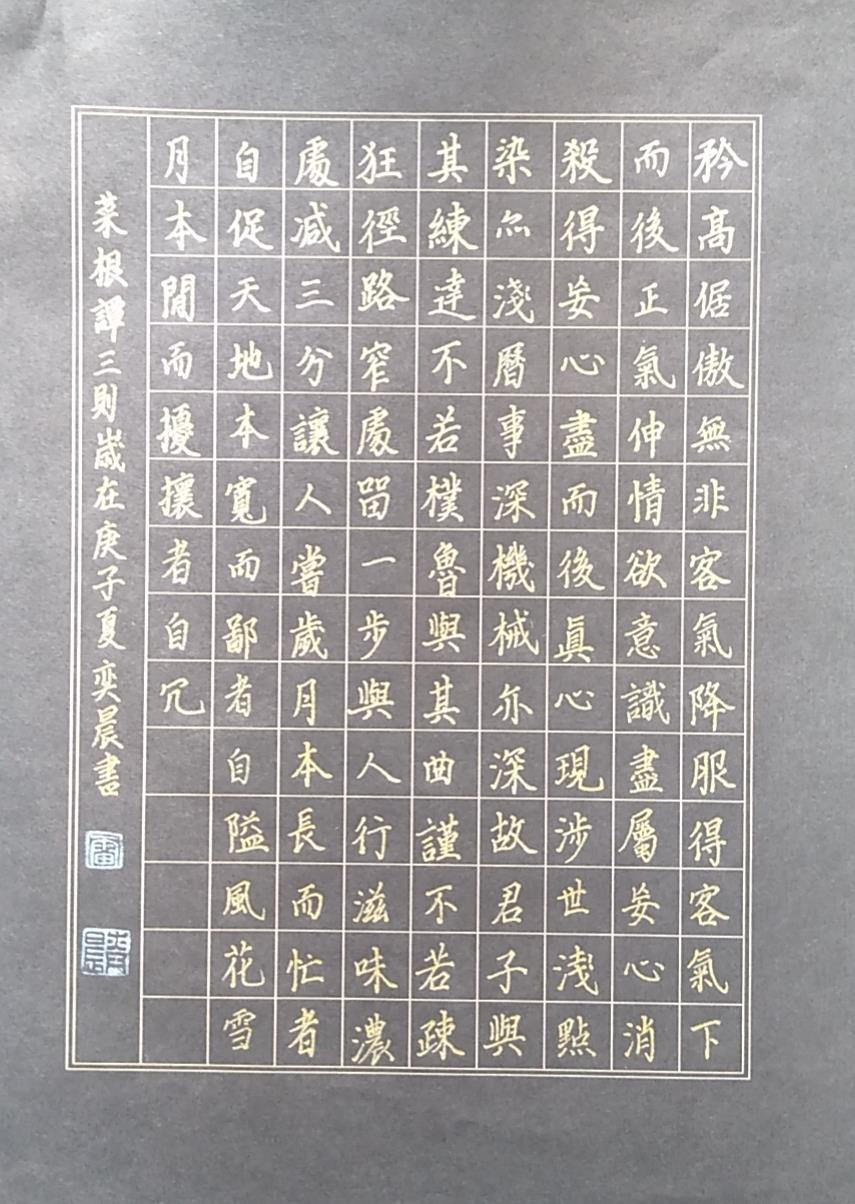 矜高倨傲無非客氣降服得客氣下
而後正氣伸情欲意識盡屬妄心消
殺得妄心盡而後眞心現涉世淺點
染亦淺曆事深機械亦深故君子與
其練達不若樸魯與其曲謹不若疎
狂徑路窄處留一步與人行滋味濃
處减三分讓人嘗歲月本長而忙者
自促天地本寬而鄙者自隘風花雪
月本閒而擾攘者自冗
菜根譚三則歲在庚子夏奕晨書